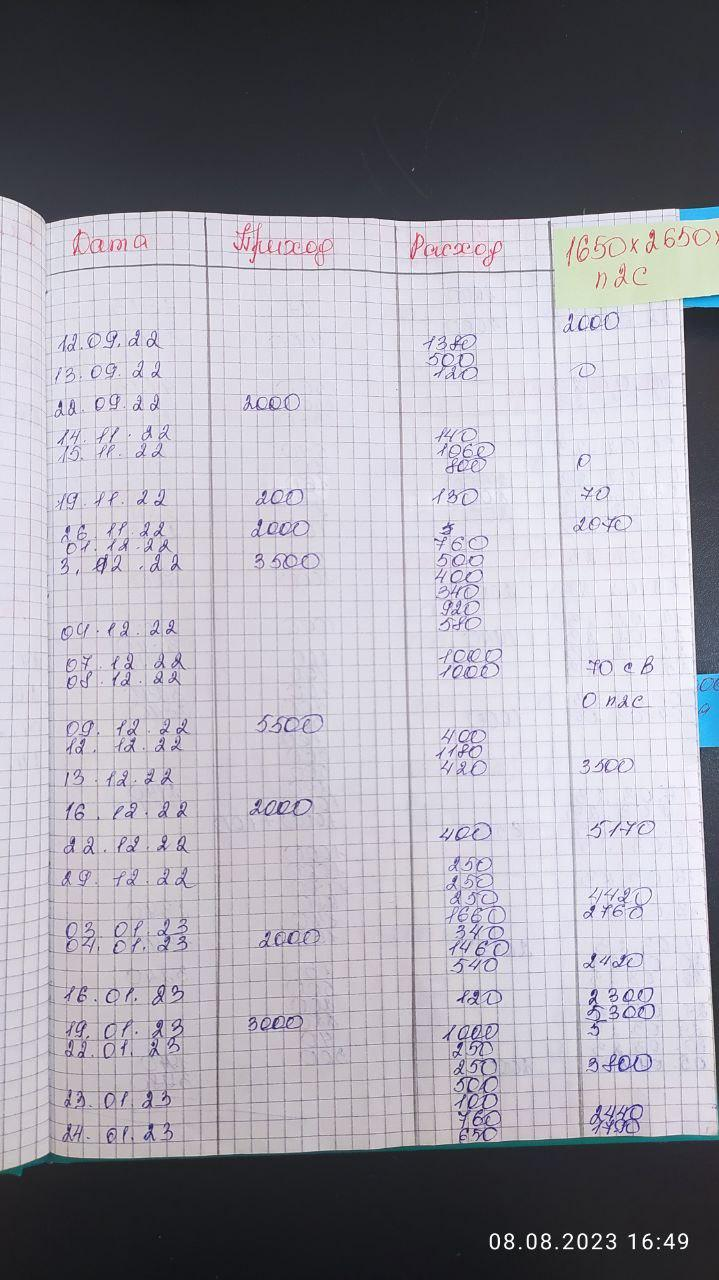 Дата Приход Расход 1650х2650х
п2с
2000
12.09.22 1380
500
13.09.22 120 0
22.09.22 2000
14.11.22 140
15.11.22 1060
800 0
19.11.22 200 130 70
26.11.22 2000 5 2070
01.12.22 760
3.12.22 3500 500
400
340
920
04.12.22 580
07.12.22 1000 70 св
08.12.22 1000
0 п2с
09.12.22 5500 400
12.12.22 1180
13.12.22 420 3500
16.12.22 2000
22.12.22 400 5170
250
29.12.22 250
250 4420
1660 2760
03.01.23 340
04.01.23 2000 1460
540 2420
16.01.23 120 2300
5300
19.01.23 3000 1000 5
22.01.23 250
250 3800
500
23.01.23 100
760 2440
24.01.23 650
08.08.2023 16:49